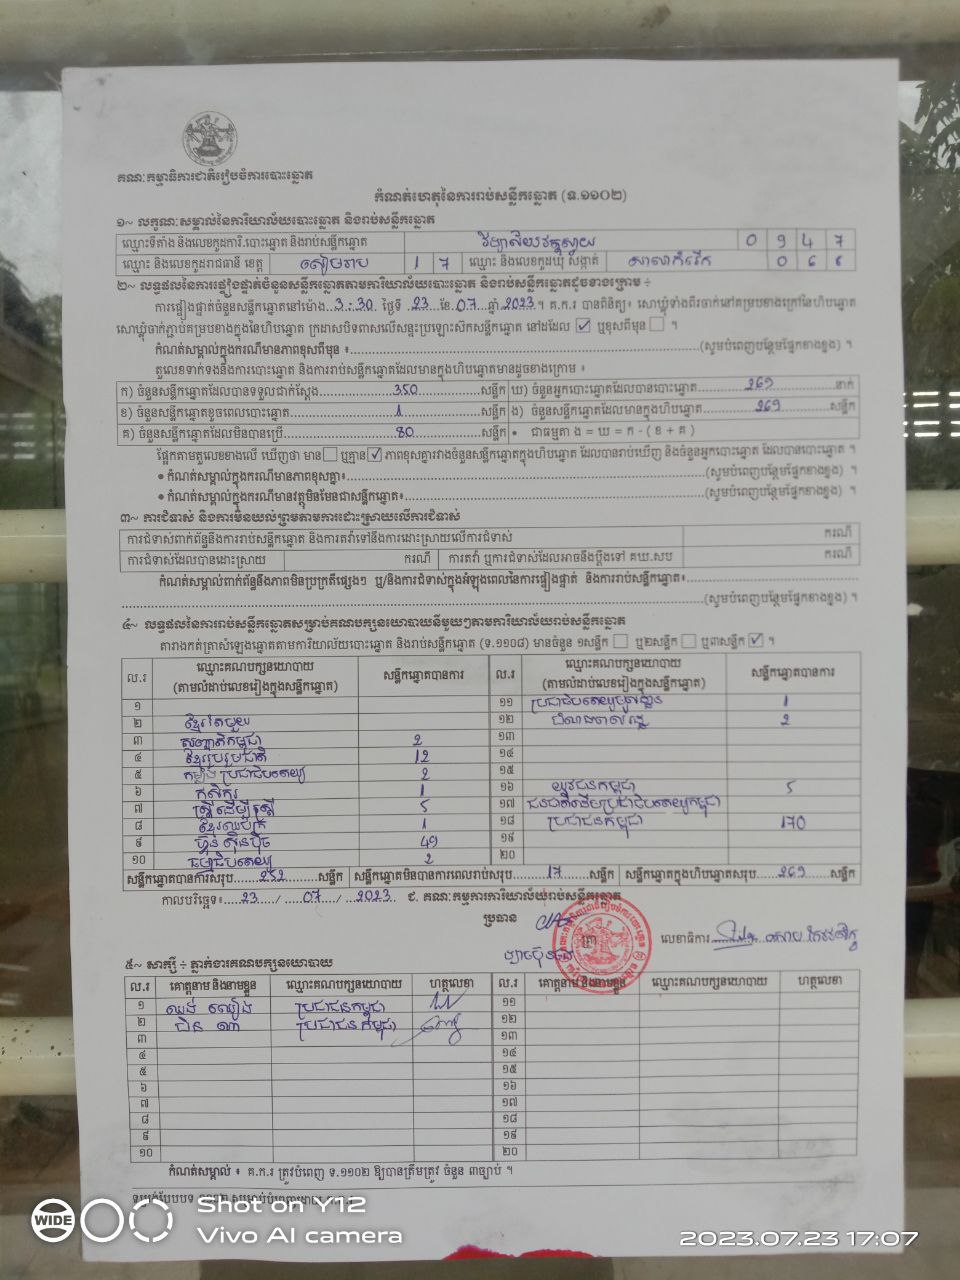 គណៈកម្មាធិការជាតិរៀបចំការបោះឆ្នោត
កំណត់ហេតុនៃការរាប់សន្លឹកឆ្នោត (ទ.១១០២)
១~ លក្ខណៈសម្គាល់នៃការិយាល័យបោះឆ្នោត និងរាប់សន្លឹកឆ្នោត
ឈ្មោះទីតាំង និងលេខកូដការិ.បោះឆ្នោត និងរាប់សន្លឹកឆ្នោត 0 9 4 7
ឈ្មោះ និងលេខកូដរាជធានី ខេត្ត សៀមរាប 1 7 ឈ្មោះ និងលេខកូដឃុំ សង្កាត់ សាលាកំរើក 0 6 6
២~ លទ្ធផលនៃការផ្ទៀងផ្ទាត់ចំនួនសន្លឹកឆ្នោតតាមការិយាល័យបោះឆ្នោត និងរាប់សន្លឹកឆ្នោតដូចខាងក្រោម ÷
ការផ្ទៀងផ្ទាត់ចំនួនសន្លឹកឆ្នោតនៅម៉ោង 3:30 ថ្ងៃទី 23 ខែ 07 ឆ្នាំ 2023។ គ.ក.រ បានពិនិត្យ៖ សោឃ្លុំទាំងពីរចាក់នៅគម្របខាងក្រៅនៃហិបឆ្នោត
សោឃ្លុំចាក់ភ្ជាប់គម្របខាងក្នុងនៃហិបឆ្នោត ក្រដាសបិទពាសលើសន្ទះប្រឡោះសិកសន្លឹកឆ្នោត នៅដដែល ☑ ឬខុសពីមុន ☐ ។
កំណត់សម្គាល់ក្នុងករណីមានភាពខុសពីមុន ៖ (សូមបំពេញបន្ថែមផ្នែកខាងខ្នង) ។
តួលេខទាក់ទងនឹងការបោះឆ្នោត និងការរាប់សន្លឹកឆ្នោតដែលមានក្នុងហិបឆ្នោតមានដូចខាងក្រោម ៖
ក) ចំនួនសន្លឹកឆ្នោតដែលបានទទួលជាក់ស្តែង 350 សន្លឹក ឃ) ចំនួនអ្នកបោះឆ្នោតដែលបានបោះឆ្នោត 269 នាក់
ខ) ចំនួនសន្លឹកឆ្នោតខូចពេលបោះឆ្នោត 1 សន្លឹក ង) ចំនួនសន្លឹកឆ្នោតដែលមានក្នុងហិបឆ្នោត 269 សន្លឹក
គ) ចំនួនសន្លឹកឆ្នោតដែលមិនបានប្រើ 80 សន្លឹក • ជាធម្មតា ង = ឃ = ក - ( ខ + គ )
ផ្អែកតាមតួលេខខាងលើ ឃើញថា មាន ☐ ឬគ្មាន ☑ ភាពខុសគ្នារវាងចំនួនសន្លឹកឆ្នោតក្នុងហិបឆ្នោត ដែលបានរាប់ឃើញ និងចំនួនអ្នកបោះឆ្នោត ដែលបានបោះឆ្នោត ។
• កំណត់សម្គាល់ក្នុងករណីមានភាពខុសគ្នា៖ (សូមបំពេញបន្ថែមផ្នែកខាងខ្នង) ។
• កំណត់សម្គាល់ក្នុងករណីមានវត្ថុមិនមែនជាសន្លឹកឆ្នោត៖ (សូមបំពេញបន្ថែមផ្នែកខាងខ្នង) ។
៣~ ការជំទាស់ និងការមិនយល់ព្រមតាមការដោះស្រាយលើការជំទាស់
ការជំទាស់ពាក់ព័ន្ធនឹងការរាប់សន្លឹកឆ្នោត និងការតវ៉ាទៅនឹងការដោះស្រាយលើការជំទាស់ ករណី
ការជំទាស់ដែលបានដោះស្រាយ ករណី ការតវ៉ា ឬការជំទាស់ដែលអាចនឹងប្តឹងទៅ គឃ.សប ករណី
កំណត់សម្គាល់ពាក់ព័ន្ធនឹងភាពមិនប្រក្រតីផ្សេងៗ ឬ/និងការជំទាស់ក្នុងអំឡុងពេលនៃការផ្ទៀងផ្ទាត់ និងការរាប់សន្លឹកឆ្នោត៖
(សូមបំពេញបន្ថែមផ្នែកខាងខ្នង) ។
៤~ លទ្ធផលនៃការរាប់សន្លឹកឆ្នោតសម្រាប់គណបក្សនយោបាយនីមួយៗតាមការិយាល័យរាប់សន្លឹកឆ្នោត
តារាងកត់ត្រាសំឡេងឆ្នោតតាមការិយាល័យបោះឆ្នោត និងរាប់សន្លឹកឆ្នោត (ទ.១១០៨) មានចំនួន ១សន្លឹក ☐ ឬ២សន្លឹក ☐ ឬ៣សន្លឹក ☑ ។
ល.រ ឈ្មោះគណបក្សនយោបាយ (តាមលំដាប់លេខរៀងក្នុងសន្លឹកឆ្នោត) សន្លឹកឆ្នោតបានការ ល.រ ឈ្មោះគណបក្សនយោបាយ (តាមលំដាប់លេខរៀងក្នុងសន្លឹកឆ្នោត) សន្លឹកឆ្នោតបានការ
១ ១១ ប្រជាធិបតេយ្យមូលដ្ឋាន 1
២ ខ្មែរតែមួយ ១២ 2
៣ សញ្ជាតិកម្ពុជា 2 ១៣
៤ ខ្មែររួបរួមជាតិ 12 ១៤
៥ កម្លាំងប្រជាធិបតេយ្យ 2 ១៥
៦ កសិករ 1 ១៦ យុវជនកម្ពុជា 5
៧ ស្ត្រីដើម្បីស្ត្រី 5 ១៧ ជនជាតិដើមប្រជាធិបតេយ្យកម្ពុជា
៨ ខ្មែរឈប់ក្រ 1 ១៨ ប្រជាជនកម្ពុជា 170
៩ ហ៊្វុនស៊ិនប៉ិច 49 ១៩
១០ ធម្មាធិបតេយ្យ 2 ២០
សន្លឹកឆ្នោតបានការសរុប 252 សន្លឹក សន្លឹកឆ្នោតមិនបានការពេលរាប់សរុប 17 សន្លឹក សន្លឹកឆ្នោតក្នុងហិបឆ្នោតសរុប 269 សន្លឹក
កាលបរិច្ឆេទ៖ 23 / 07 / 2023 ជ. គណៈកម្មការការិយាល័យរាប់សន្លឹកឆ្នោត
ប្រធាន ត្រា លេខាធិការ
៥~ សាក្សី ÷ ភ្នាក់ងារគណបក្សនយោបាយ
ល.រ គោត្តនាម និងនាមខ្លួន ឈ្មោះគណបក្សនយោបាយ ហត្ថលេខា ល.រ គោត្តនាម និងនាមខ្លួន ឈ្មោះគណបក្សនយោបាយ ហត្ថលេខា
១ ប្រជាជនកម្ពុជា ១១
២ ប្រជាជនកម្ពុជា ១២
៣ ១៣
៤ ១៤
៥ ១៥
៦ ១៦
៧ ១៧
៨ ១៨
៩ ១៩
១០ ២០
កំណត់សម្គាល់ ៖ គ.ក.រ ត្រូវបំពេញ ទ.១១០២ ឱ្យបានត្រឹមត្រូវ ចំនួន ៣ច្បាប់ ។
WIDE
Shot on Y12
Vivo AI camera
2023.07.23 17:07